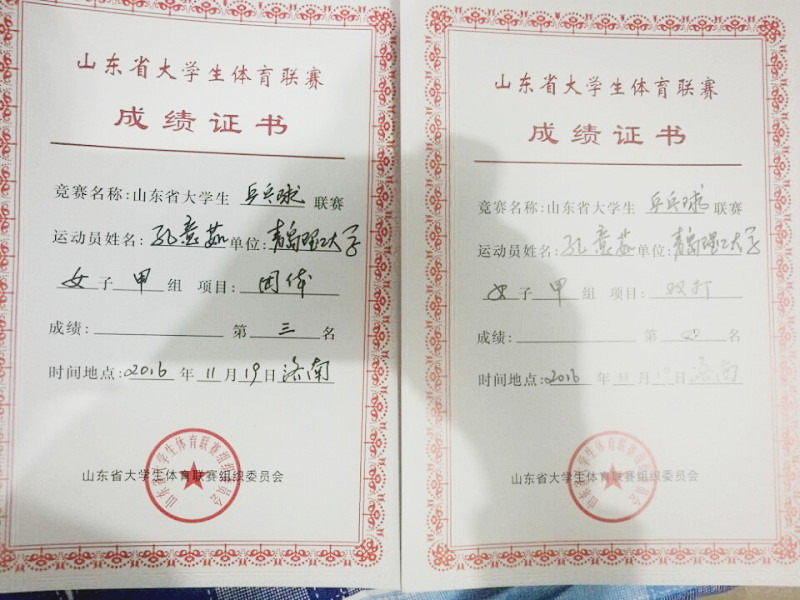 山东省大学生体育联赛
成绩证书
竞赛名称:山东省大学生 乒乓球 联赛
运动员姓名:孔意茹 单位:青岛理工大学
女子 甲 组 项目: 团体
成绩: 第 三 名
时间地点: 2016 年 11 月 19 日 济南
山东省大学生体育联赛组织委员会
山东省大学生体育联赛组织委员会
山东省大学生体育联赛
成绩证书
竞赛名称:山东省大学生 乒乓球 联赛
运动员姓名:孔意茹 单位:青岛理工大学
女子 甲 组 项目: 双打
成绩: 第 四 名
时间地点: 2016 年 11 月 19 日 济南
山东省大学生体育联赛组织委员会
山东省大学生体育联赛组织委员会